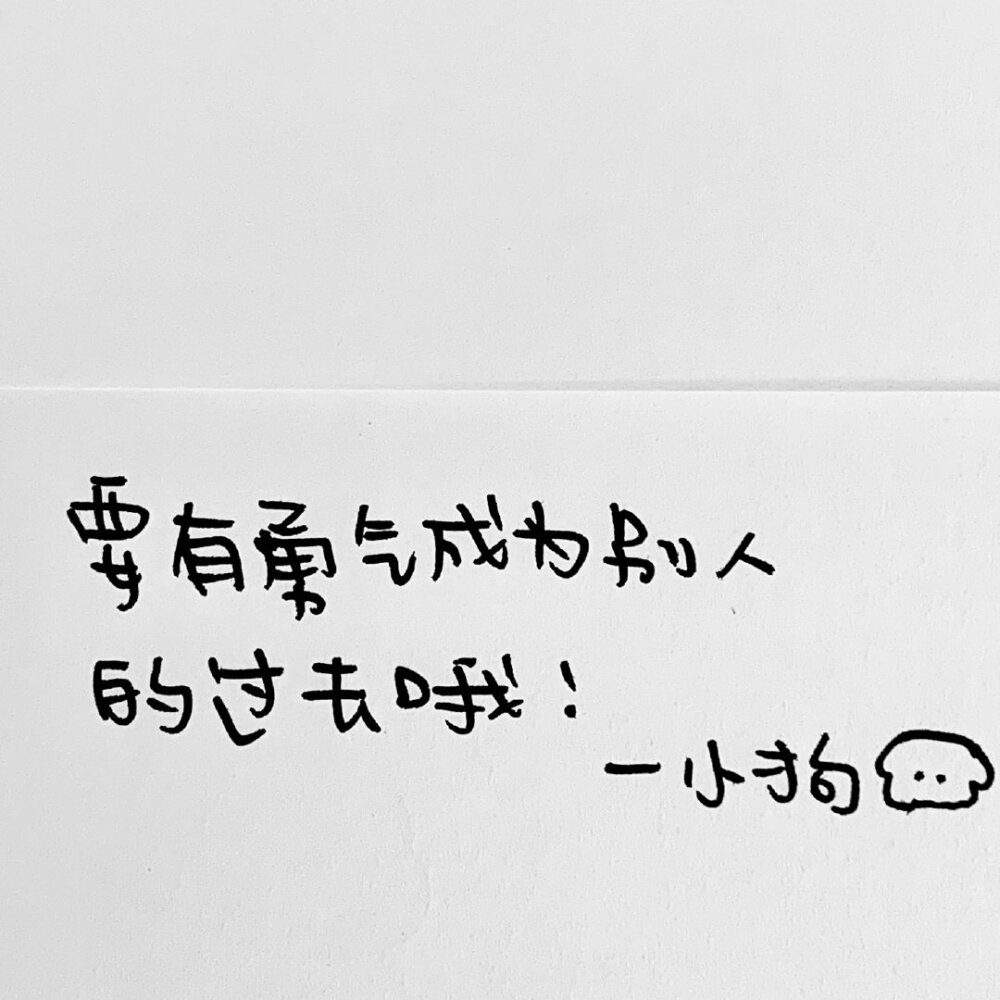 要有勇气成为别人
的过去哦！
一小狗